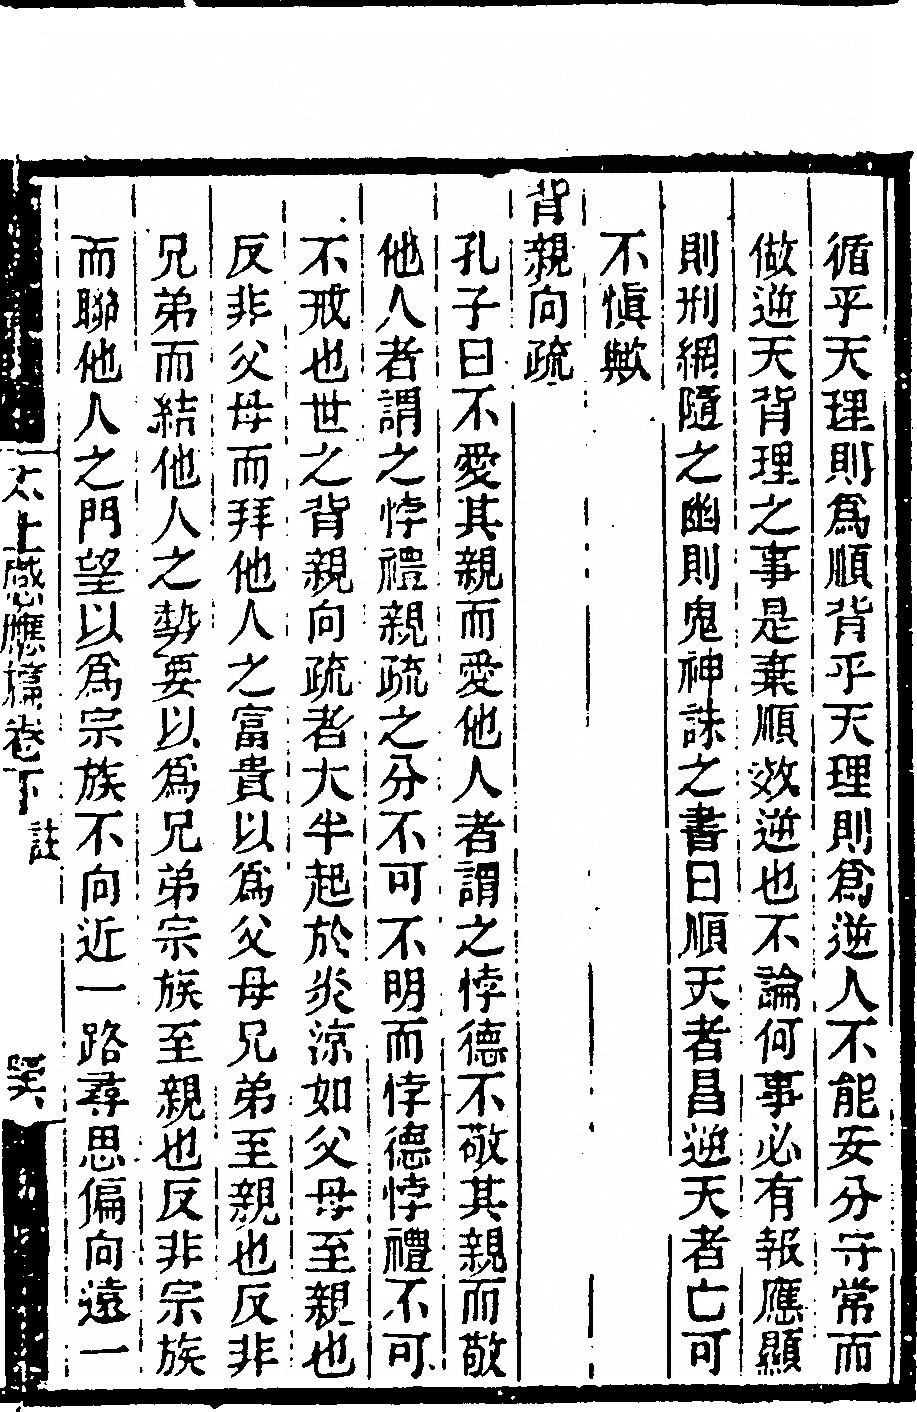 循乎天理則爲順背乎天理則爲逆人不能安分守常而
做逆天背理之事是棄順效逆也不論何事必有報應顯
則刑網隨之幽則鬼神誅之書曰順天者昌逆天者亡可
不愼歟
背親向疏
孔子曰不愛其親而愛他人者謂之悖德不敬其親而敬
他人者謂之悖禮親疏之分不可不明而悖德悖禮不可
不戒也世之背親向疏者大半起於炎涼如父母至親也
反非父母而拜他人之富貴以爲父母兄弟至親也反非
兄弟而結他人之勢要以爲兄弟宗族至親也反非宗族
而聯他人之門望以爲宗族不向近一路尋思偏向遠一
太上感應篇卷下
註